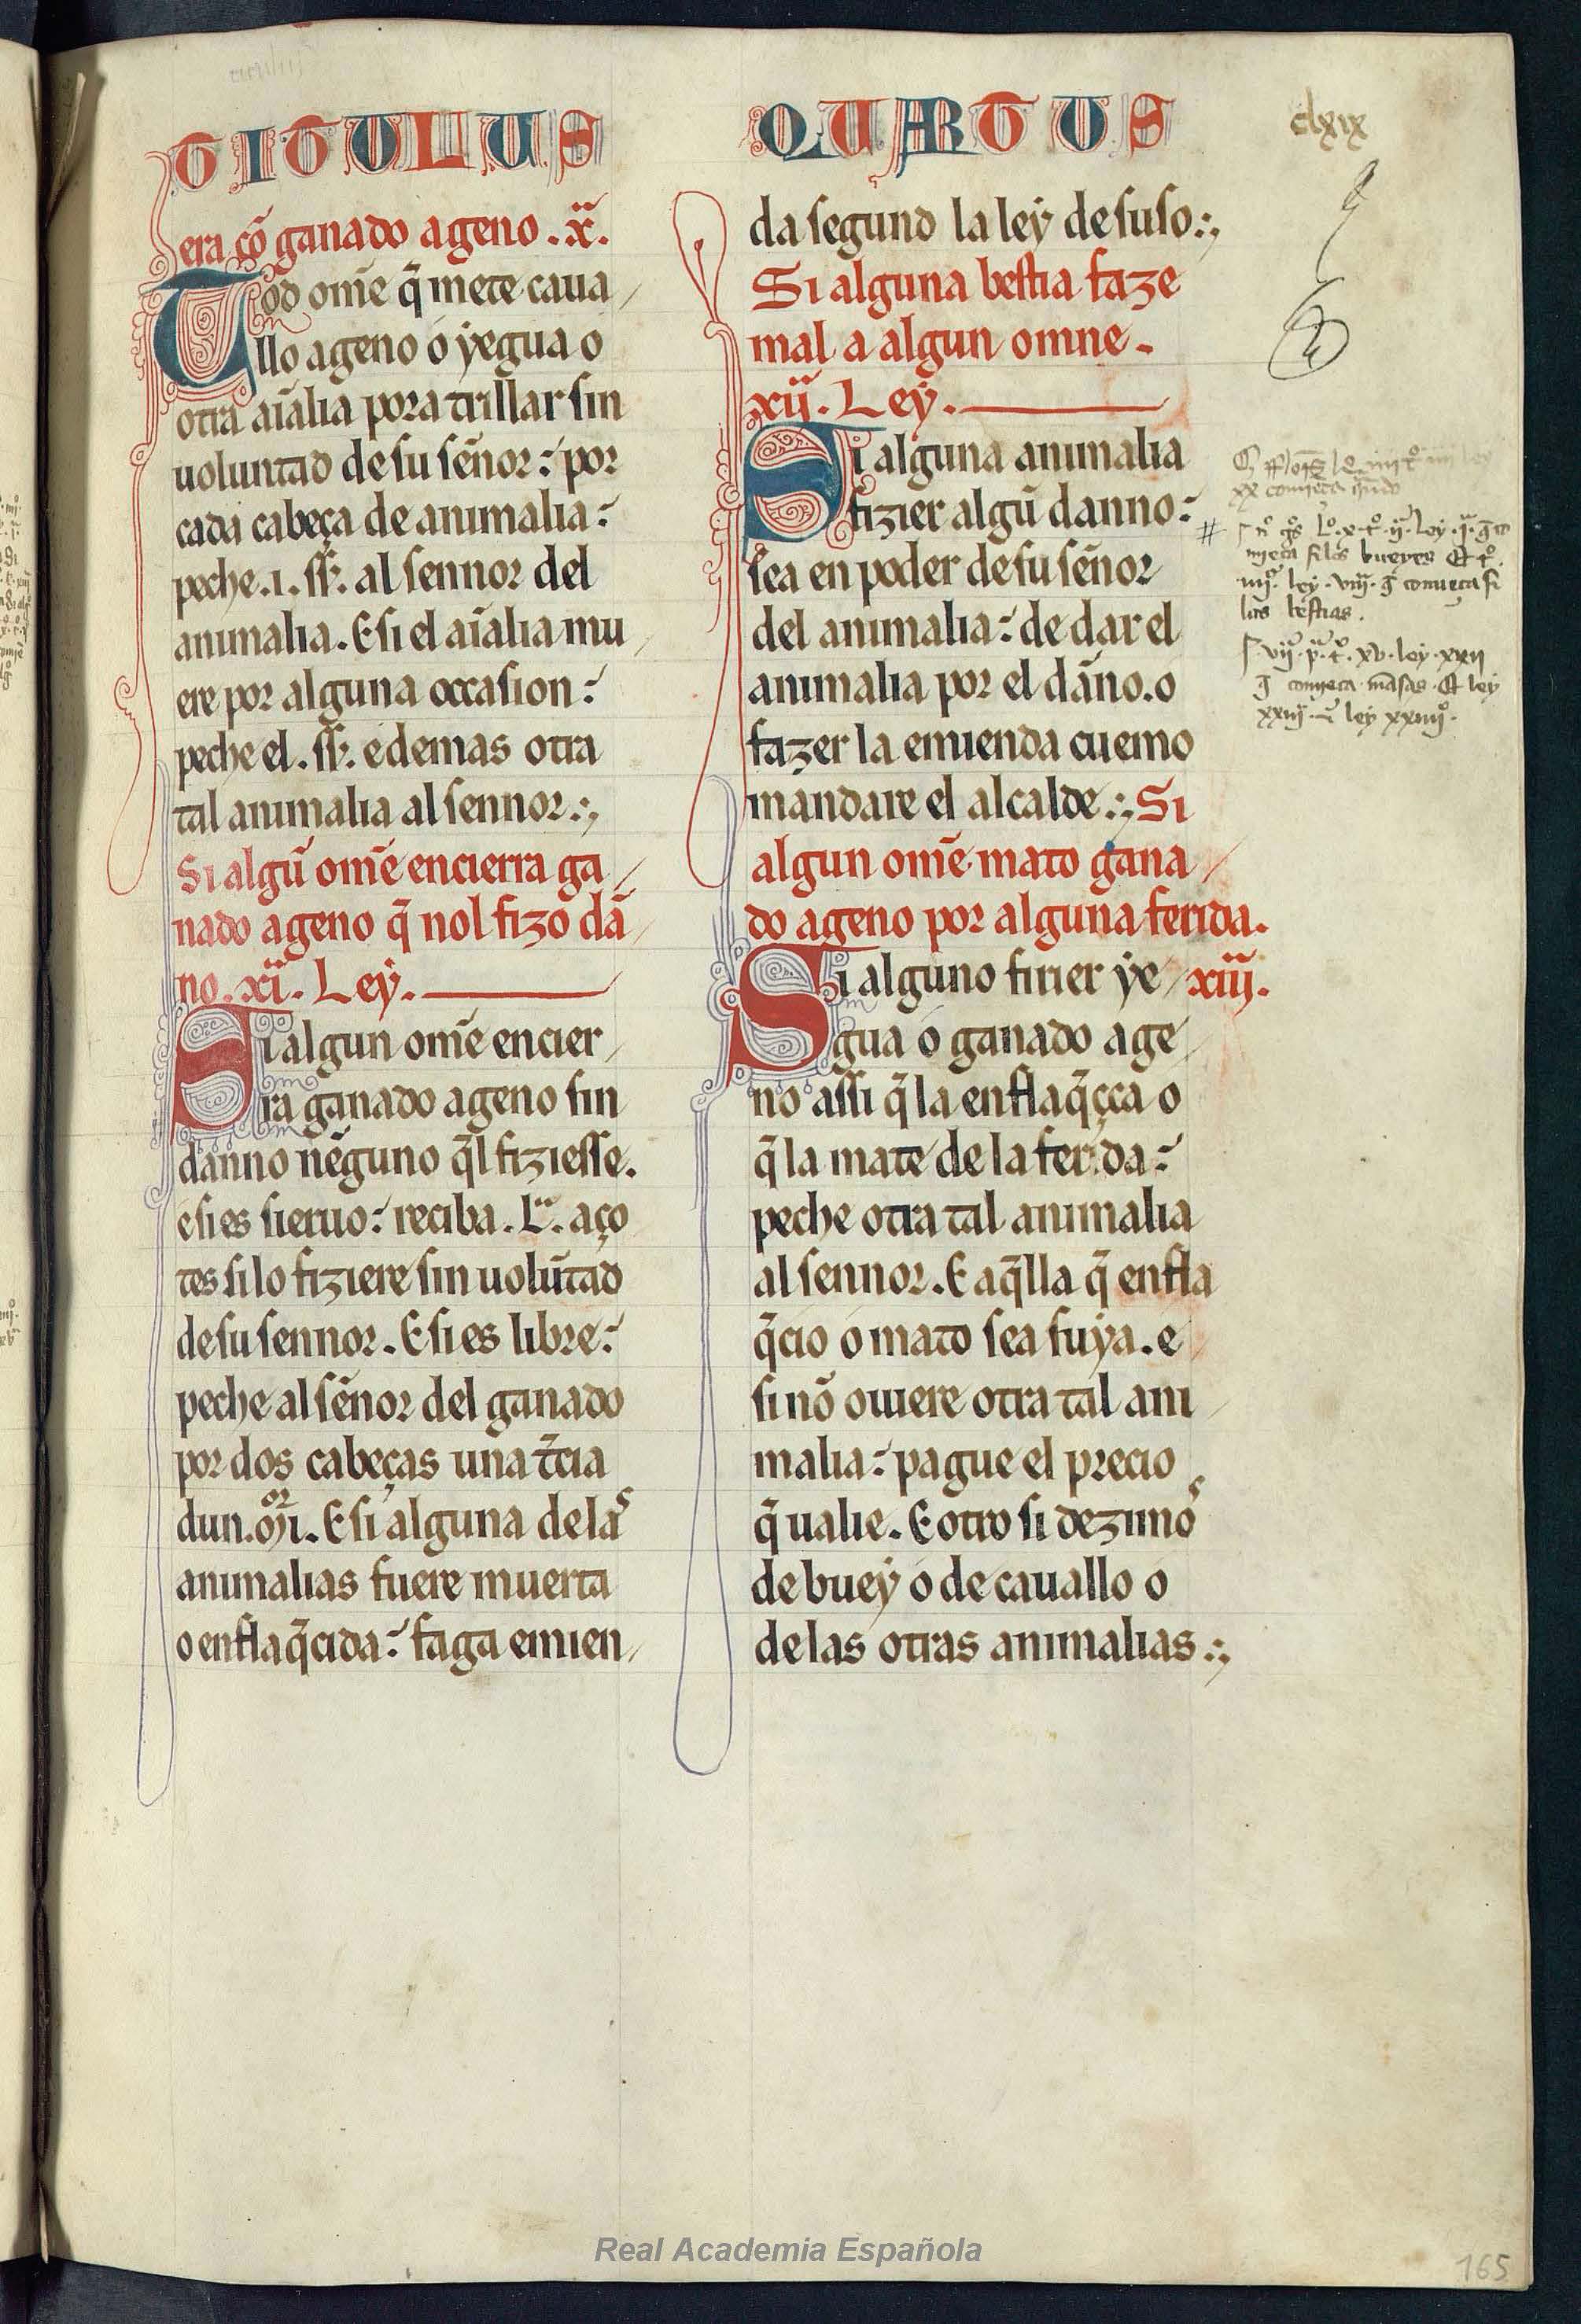 TITULUS QUARTUS
clxix
era cõ ganado ageno . x̃.
Tod om̃e q̃ mete caua
llo ageno o yegua o
otra aĩalia pora trillar sin
uoluntad de su sẽnor: por
cada cabeça de animalia:
peche .i. sł. al sennor del
animalia. E si el aĩalia mu
ere por alguna occasion:
peche el . sł. e demas otra
tal animalia al sennor.
Si algũ om̃e encierra ga
nado ageno q̃ nol fizo dã
no. xi. Ley.
Si algun om̃e encier
ra ganado ageno sin
danno nẽguno q̃l fiziesse.
e si es sieruo: reciba . L. aço
tes si lo fiziere sin uolũtad
de su sennor. E si es libre:
peche al sẽnor del ganado
por dos cabeças una t̃cia
dun. mr̃i. E si alguna de las
animalias fuere muerta
o enflaq̃cida: faga emien
da segund la ley de suso.
Si alguna bestia faze
mal a algun omne.
xii. Ley.
Si alguna animalia
fizier algũ danno:
sea en poder de su sẽnor
del animalia: de dar el
animalia por el dãno. o
fazer la emienda cuemo
mandare el alcalde. Si
algun om̃e mato gana
do ageno por alguna ferida.
Si alguno firier ye xiii.
gua o ganado age
no assi q̃ la enflaq̃çca o
q̃ la mate de la ferida:
peche otra tal animalia
al sennor. E aq̃lla q̃ enfla
q̃cio o mato sea suya. e
si nõ ouiere otra tal ani
malia: pague el precio
q̃ ualie. E otro si dezimos
de buey o de cauallo o
de las otras animalias.
xx comieça
ley
mieça si los bueyes
ley . viii. q̃ comieça si
las bestias.
xv. ley xxii
q̃ comieça ley
xxiii ley xxiiii.
Real Academia Española
165